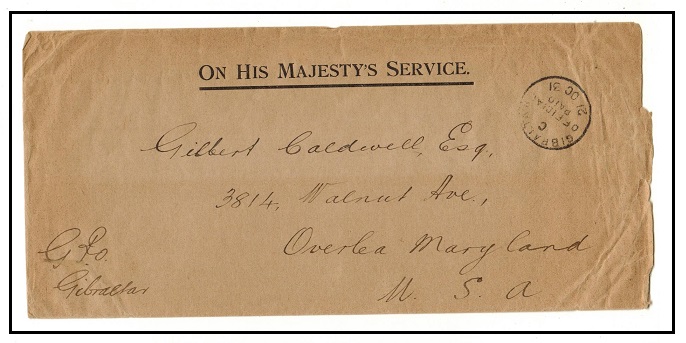 ON HIS MAJESTY'S SERVICE.
GIBRALTAR
C
OFFICIAL
PAID
21 OC 31
Gilbert Caldwell, Esq,
3814, Walnut Ave.,
Overlea Maryland
U. S. A
G.P.O.
Gibraltar